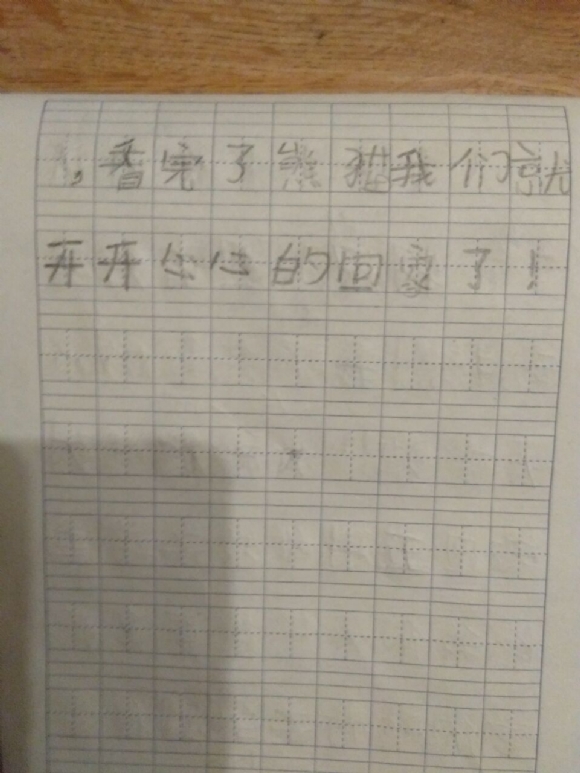 ，看完了熊猫我们就
开开心心的回家了！